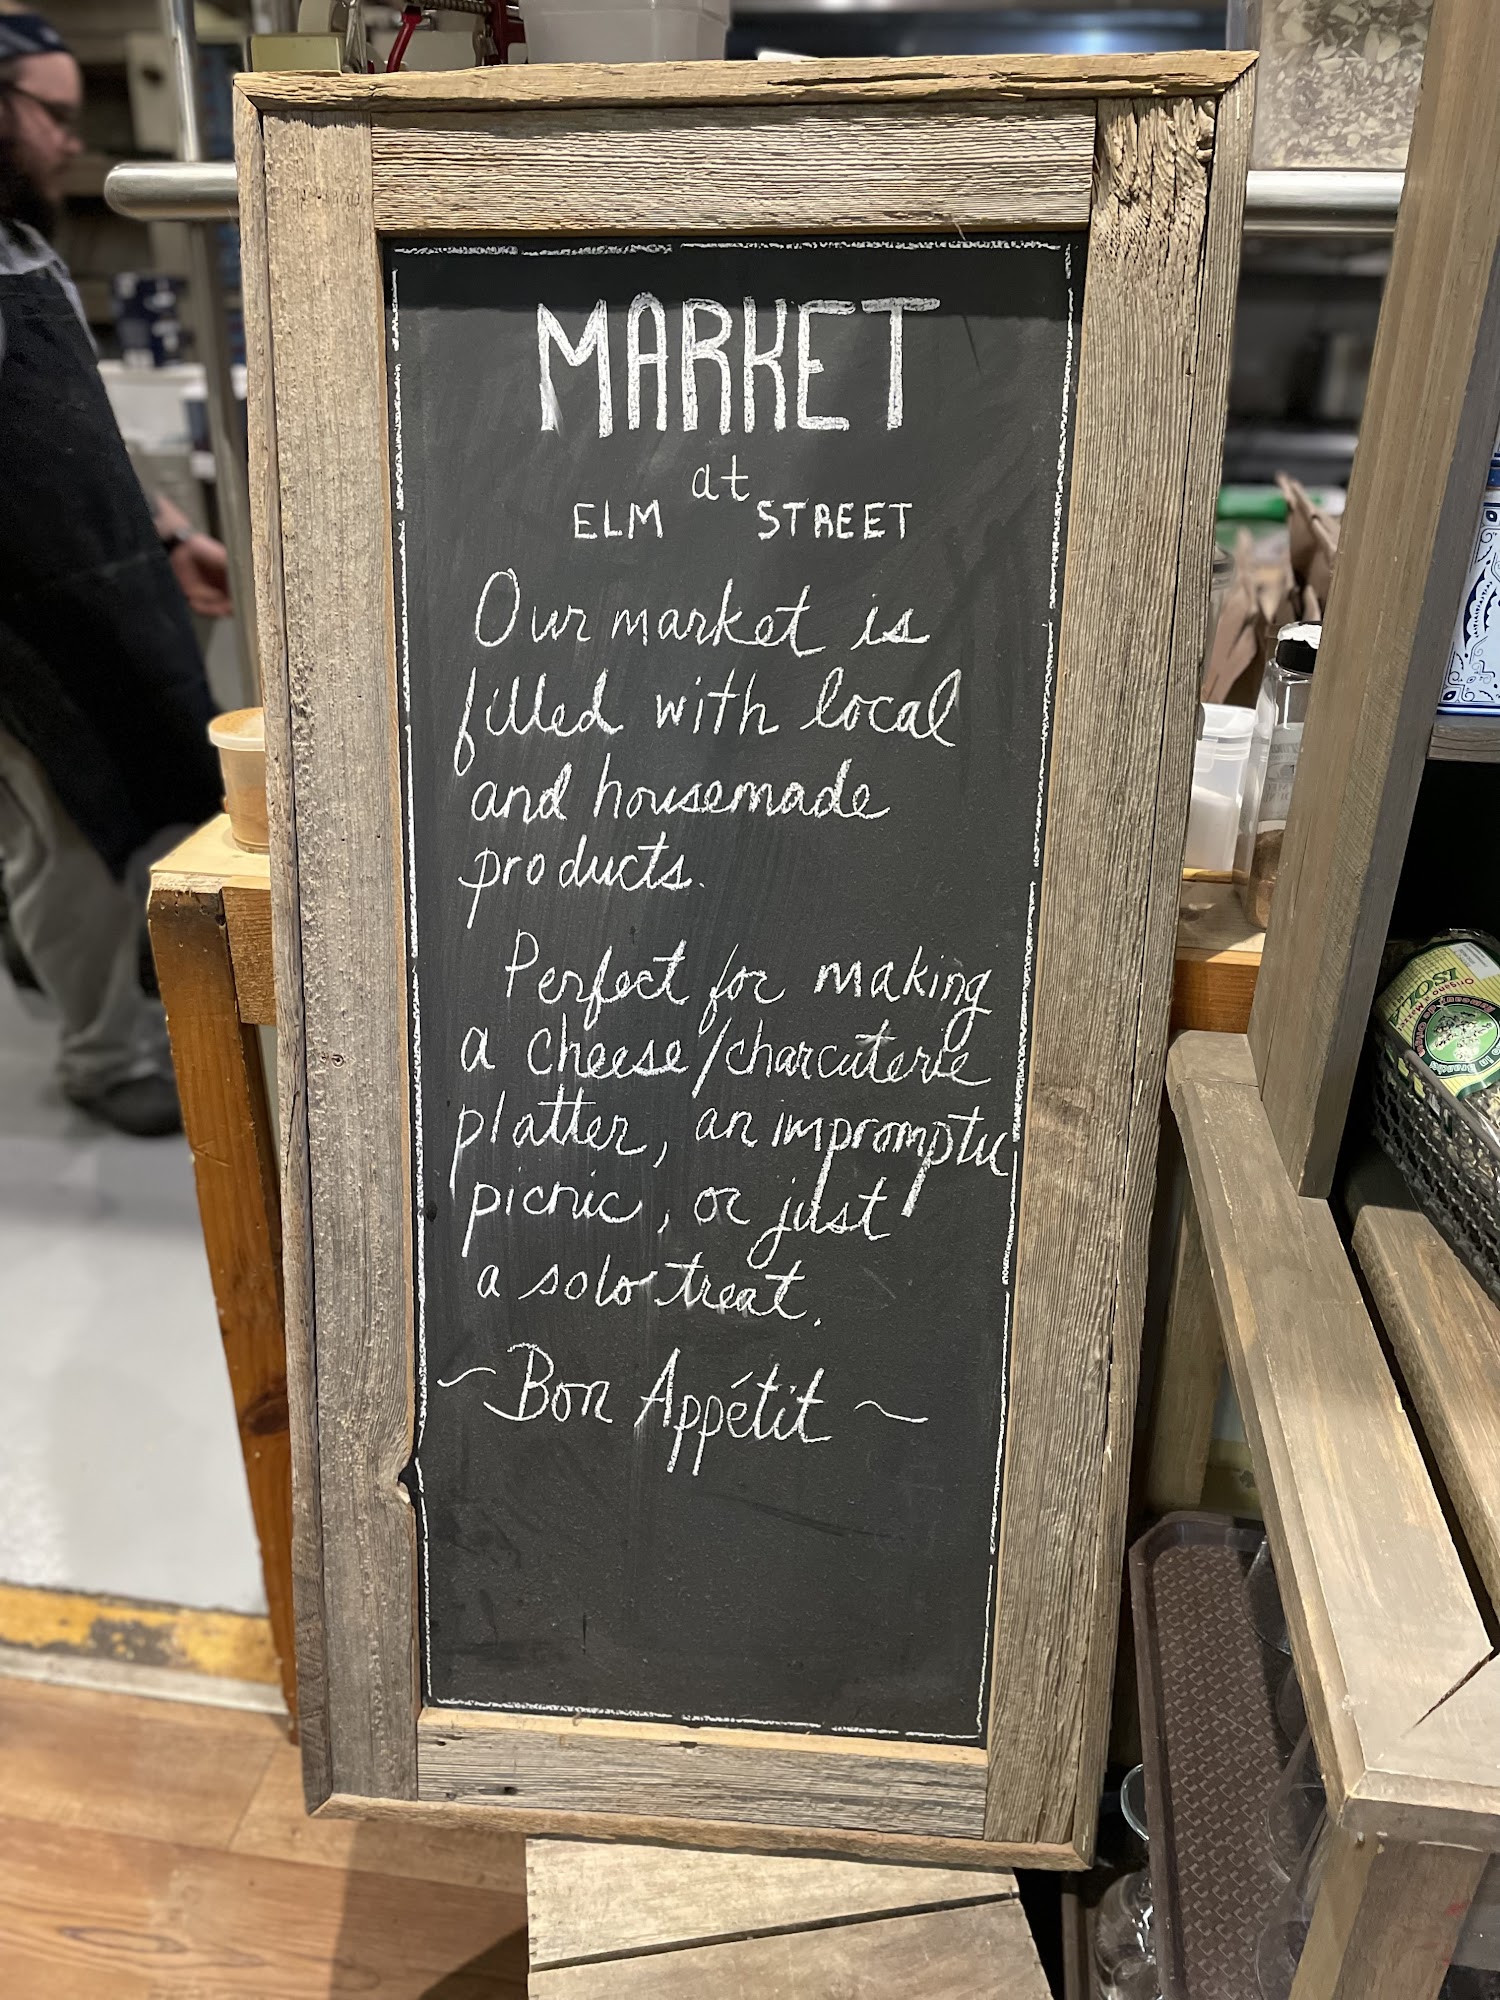 MARKET
at
ELM STREET
Our market is
filled with local
and housemade
products.
Perfect for making
a cheese/charcuterie
platter, an impromptu
picnic, or just
a solo treat.
~Bon Appétit~